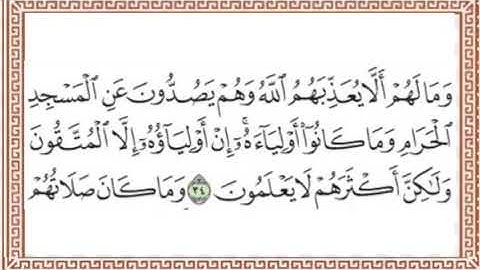 وَمَا لَهُمْ أَلَّا يُعَذِّبَهُمُ ٱللَّهُ وَهُمْ يَصُدُّونَ عَنِ ٱلْمَسْجِدِ
ٱلْحَرَامِ وَمَا كَانُوٓا۟ أَوْلِيَآءَهُۥٓ ۚ إِنْ أَوْلِيَآؤُهُۥٓ إِلَّا ٱلْمُتَّقُونَ
وَلَٰكِنَّ أَكْثَرَهُمْ لَا يَعْلَمُونَ ٣٤ وَمَا كَانَ صَلَاتُهُمْ